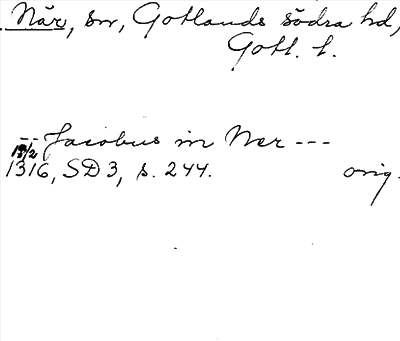 När, sn, Gotlands södra hd,
Gotl. l.
-- Jacobus in Ner ---
13/2
1316, SD 3, s. 244. orig.